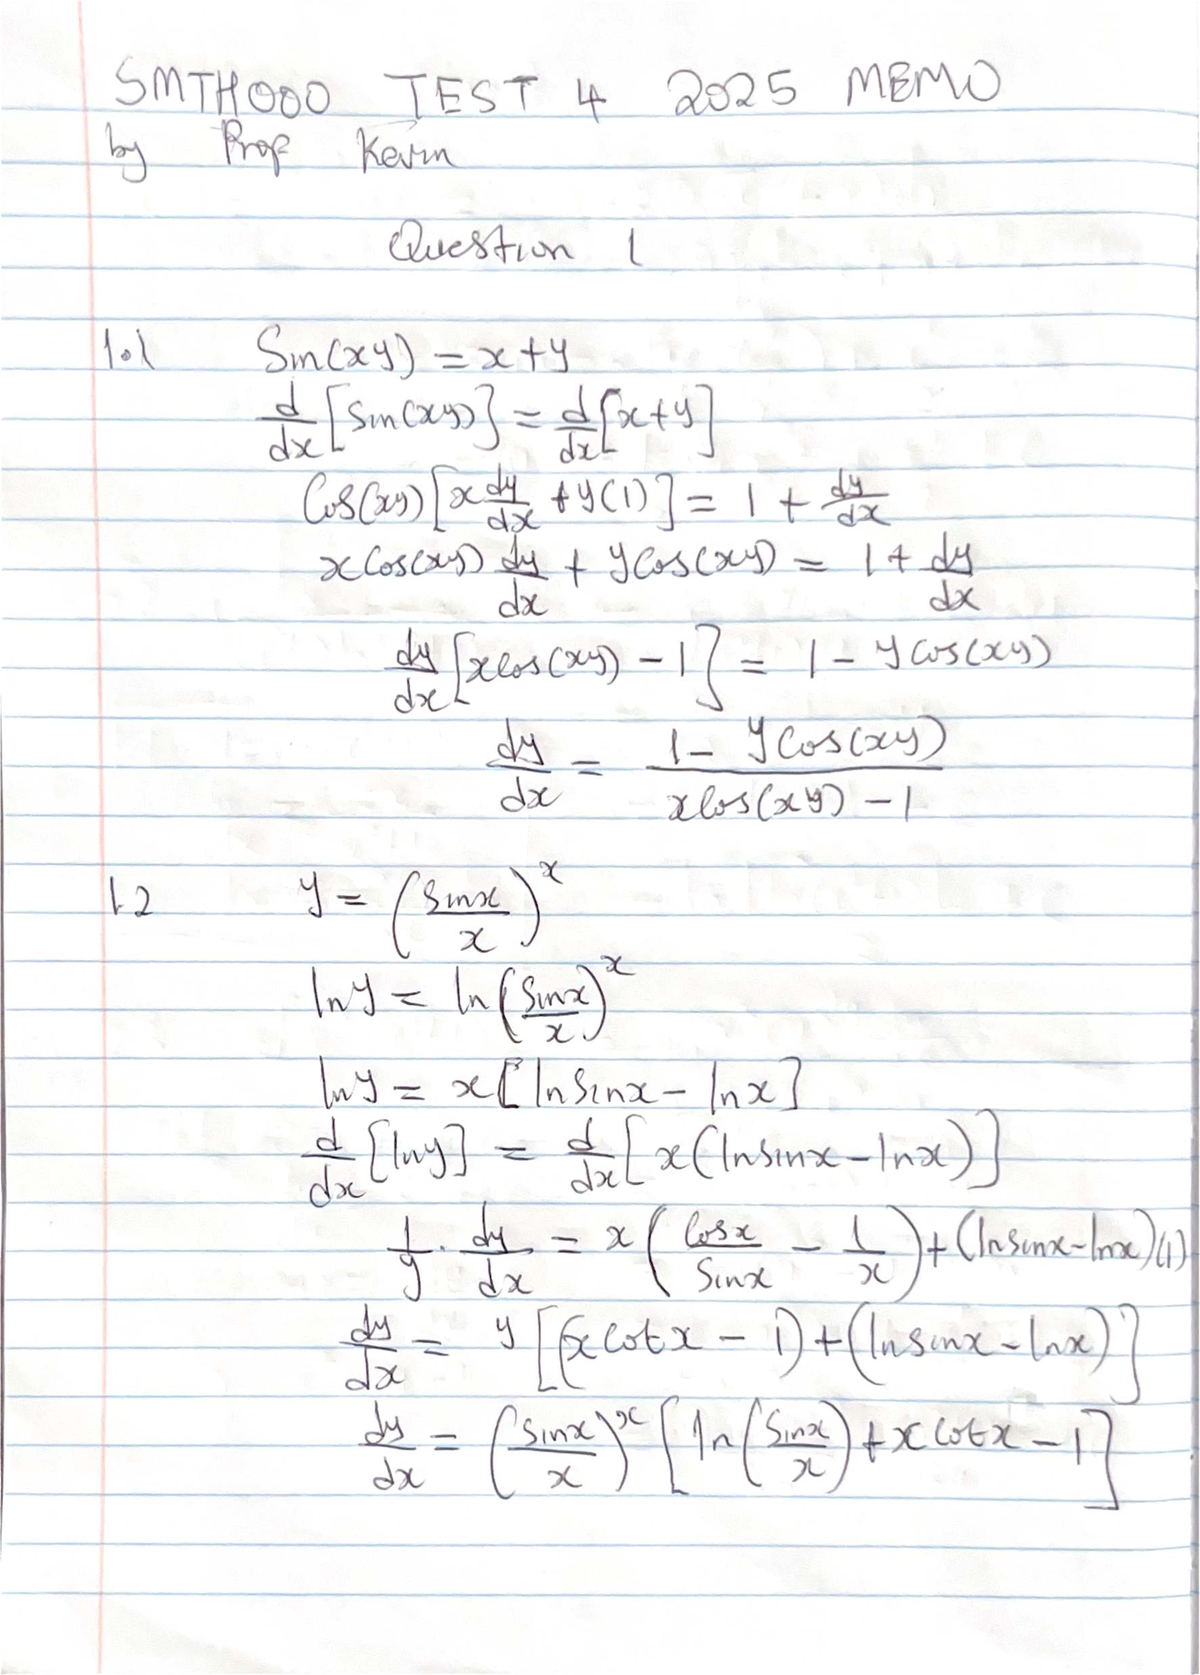 SMTH000 TEST 4 2025 MEMO
by Prof Kevin
Question 1
1.1 Sin(xy) = x+y
d/dx [Sin(xy)] = d/dx [x+y]
Cos(xy) [x dy/dx + y(1)] = 1 + dy/dx
x Cos(xy) dy/dx + y Cos(xy) = 1 + dy/dx
dy/dx [x Cos(xy) - 1] = 1 - y Cos(xy)
dy/dx = (1 - y Cos(xy)) / (x Cos(xy) - 1)
1.2 y = (Sinx/x)^x
ln y = ln (Sinx/x)^x
ln y = x [ln Sinx - ln x]
d/dx [ln y] = d/dx [x (ln sinx - ln x)]
1/y . dy/dx = x (Cos x/Sinx - 1/x) + (ln sinx - ln x)(1)
dy/dx = y [(x Cot x - 1) + (ln sinx - ln x)]
dy/dx = (Sinx/x)^x [ln (Sinx/x) + x Cot x - 1]